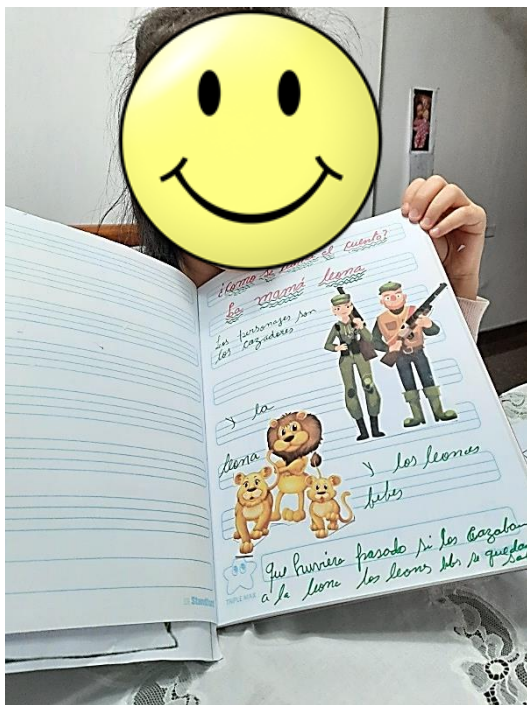 ¿Como se llama el cuento?
La mamá leona
Los personajes son
los cazadores
y la
leona
y los leones
bebes
que huviera pasado si los Cazaban
a la leona los leones bbs se quedan